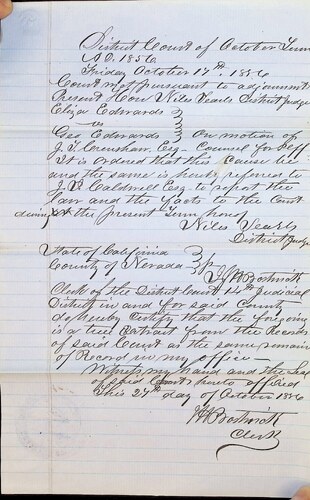 District Court of October Term
A.D. 1856
Friday October 17th, 1856
Court met pursuant to adjournment
Present Hon Niles Searls District Judge
Eliza Edwards
vs
Geo Edwards } On motion of
J. T. Crenshaw, Esq Counsel for Plff
It is ordered that this cause be
and the same is hereby referred to
J. W. Caldwell Esq to report the
law and the facts to the Court
during the present Term hereof
Niles Searls
District Judge
State of California
County of Nevada } ss
Clerk of the District Court 14th Judicial
District in and for said County
do hereby Certify that the foregoing
is a true extract from the Records
of said Court as the same remains
of Record in my office
Witness my hand and the Seal
of said Court hereto affixed
This 27th day of October 1856
Clerk